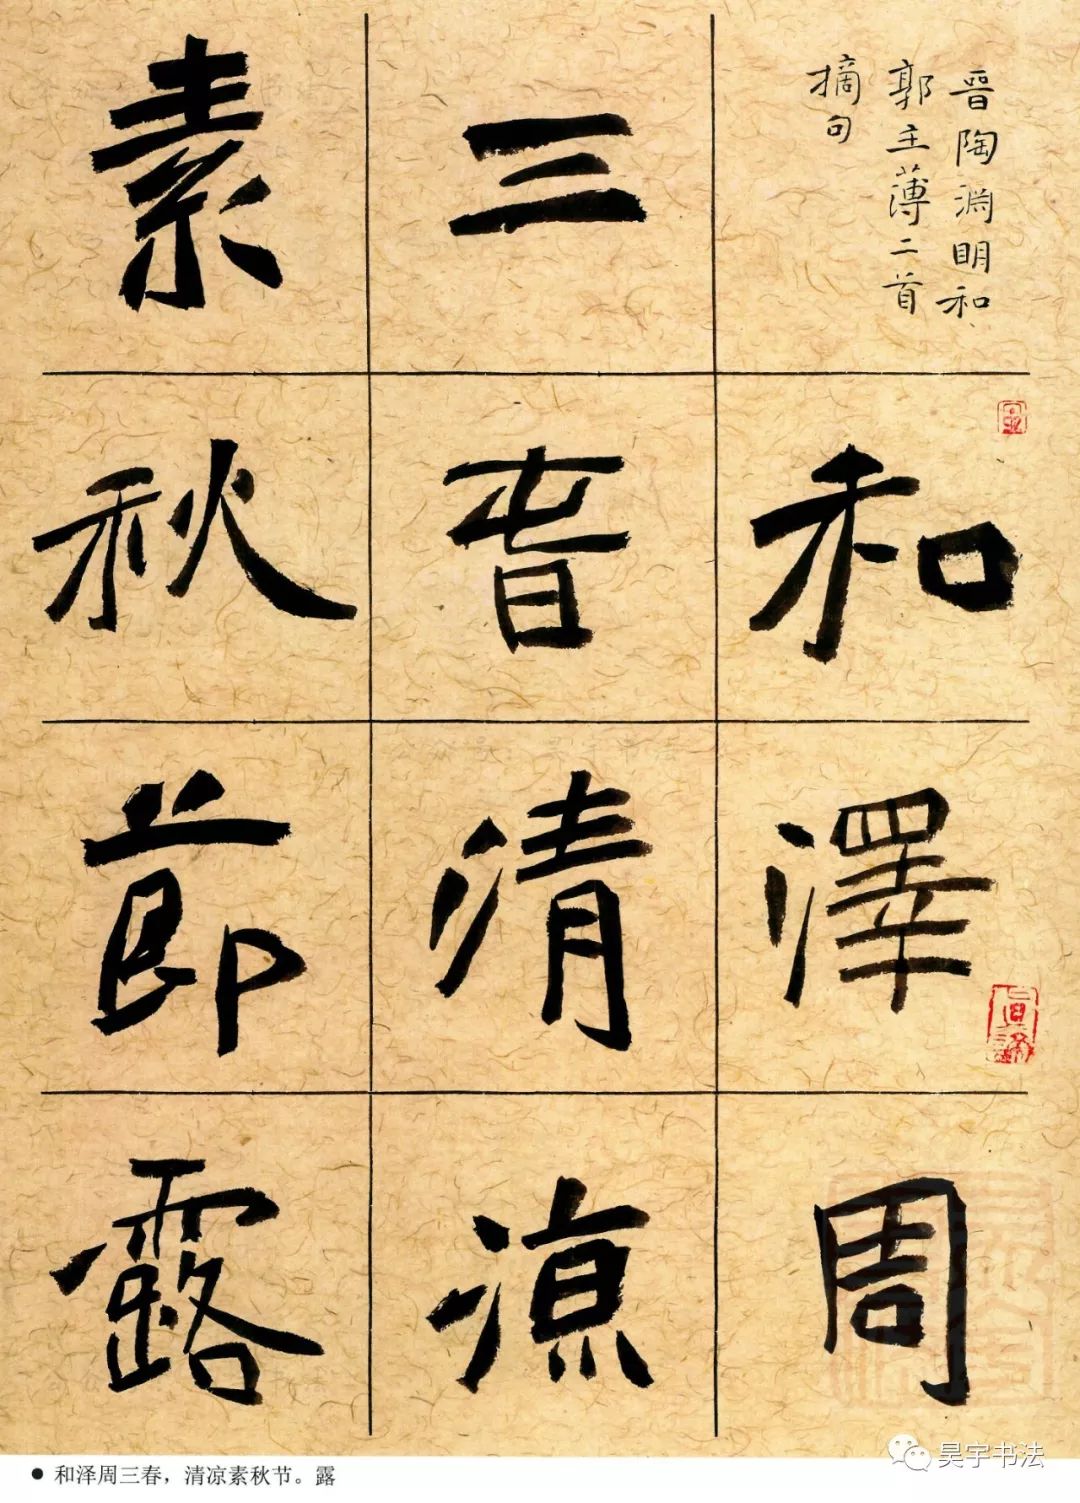 晉陶渊明和
郭主薄二首
摘句
和澤周
三旾清凉
素秋節露
● 和泽周三春，清凉素秋节。露
昊宇书法